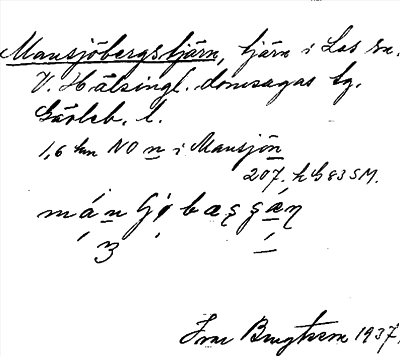 Mansjöbergstjärn, tjärn i Los sn.
V. Hälsingl. domsagas tg.
Gävleb. l.
1,6 km NO n i Mansjön
207, h G 83 SM.
Ivar Bengtsson 1937.